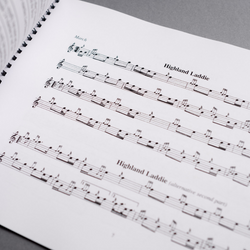 March
Highland Laddie
Highland Laddie (alternative second part)